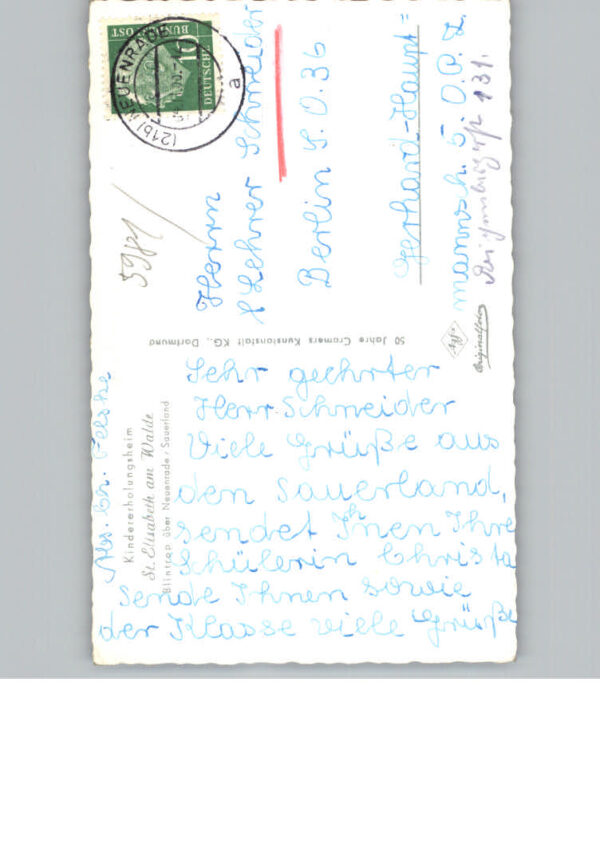 Sehr geehrter
Herr Schneider
Viele Grüße aus
den Sauerland,
sendet Ihnen Ihre
Schülerin Christa
Sende Ihnen sowie
der Klasse viele Grüße
Abs. Chr.
Kindererholungsheim
St. Elisabeth am Walde
Blintrop über Neuenrade / Sauerland
50 Jahre Cramers Kunstanstalt KG., Dortmund
Agfa
Originalfoto
Herrn
Lehrer Schneider
Berlin S.O.36
Gerhard-Haupt=
mannsch. 5. O.P.Z.
131.
5981
DEUTSCHE
BUNDESPOST
10
(21b) NEUENRADE
a